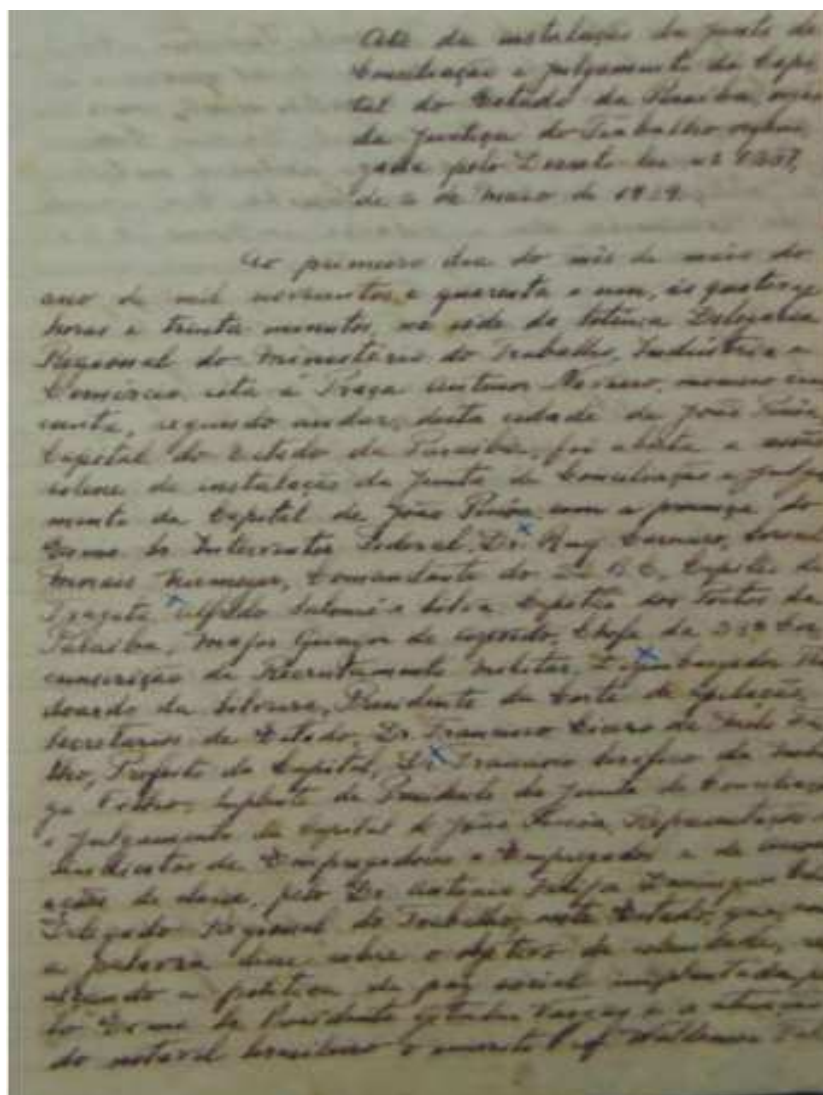 Ata da instalação da Junta de
Conciliação e Julgamento da Capi
tal do Estado da Paraíba, orgão
da Justiça do Trabalho organi
zada pelo Decreto lei nº 1237,
de 2 de Maio de 1939.
Ao primeiro dia do mês de maio do
ano de mil novecentos e quarenta e um, às quatorze
horas e trinta minutos, na sede da Delegacia
Regional do Ministério do Trabalho, Indústria e
Comércio, sita à Praça Antenor Navarro, número cin
coenta, segundo andar, desta cidade de João Pessôa,
Capital do Estado da Paraíba, foi aberta a sessão
solene de instalação da Junta de Conciliação e Julga
mento da Capital de João Pessôa, com a presença do
Exmo Sr. Interventor Federal, Dr. Ruy Carneiro, Coronel
Morais Niemeyer, Comandante do 22 B C, Capitão de
Fragata Alfredo Silva, Capitão dos Portos da
Paraíba, Major de Azevedo, Chefe da Cir
cunscrição de Recrutamento Militar, Desembargador
da Silveira, Presidente da Corte de Apelação,
Secretarios de Estado, Dr. Francisco Cicero de Melo Fi
lho, Prefeito da Capital, Dr. Francisco da
Filho, Suplente de Presidente da Junta de Conciliação
e Julgamento da Capital de João Pessôa, Representações
Sindicatos de Empregadores e Empregados e de
de classe, pelo Dr. Antonio
Delegado Regional do Trabalho, neste Estado, que, com
a palavra disse sobre o objetivo da solenidade,
a politica de paz social implantada pe
lo Exmo Sr. Presidente Getulio Vargas e a atuação
do notavel brasileiro o Prof Waldemar